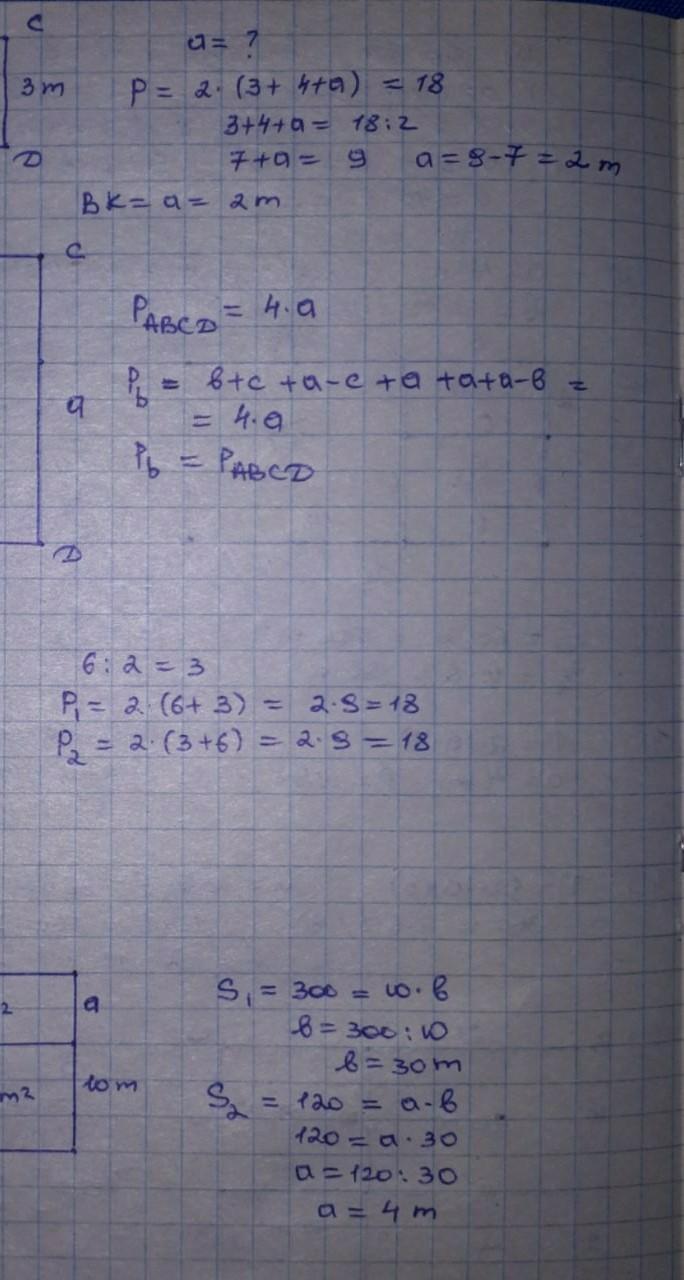 C
a = ?
3m
P = 2·(3+ 4+a) = 18
3+4+a = 18:2
D
7+a = 9 a = 9-7 = 2 m
BK = a = 2m
C
P_ABCD = 4·a
P_b = b+c +a-c +a +a+a-b =
a
= 4·a
P_b = P_ABCD
D
6 : 2 = 3
P_1 = 2·(6+ 3) = 2·9=18
P_2 = 2·(3+6) = 2·9 = 18
2 a
S_1 = 300 = 10·b
b = 300:10
b = 30m
m² 10m
S_2 = 120 = a·b
120 = a·30
a = 120:30
a = 4 m